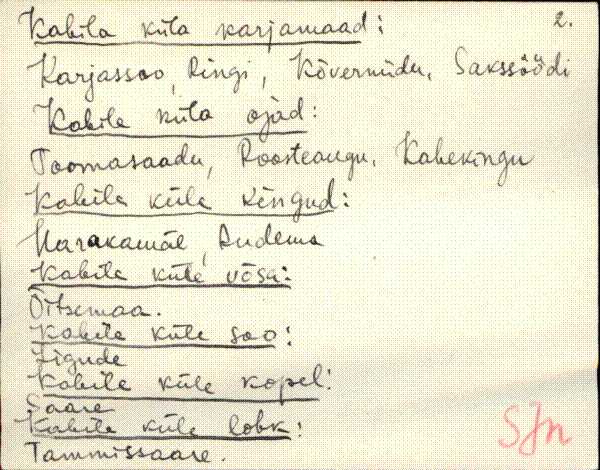 Kabila küla karjamaad: 2.
Karjassoo, Ringi, Kõverniidu, Sakssöödi
Kabila küla ojad:
Toomasaadu, Roosteaugu, Kabekingu
Kabila küla kingud:
Harakamäe, Audema
Kabila küla võsa:
Õitsemaa.
Kabila küla soo:
Sigude
Kabila küla kopel:
Saare
Kabila küla lobk:
Tammissaare.